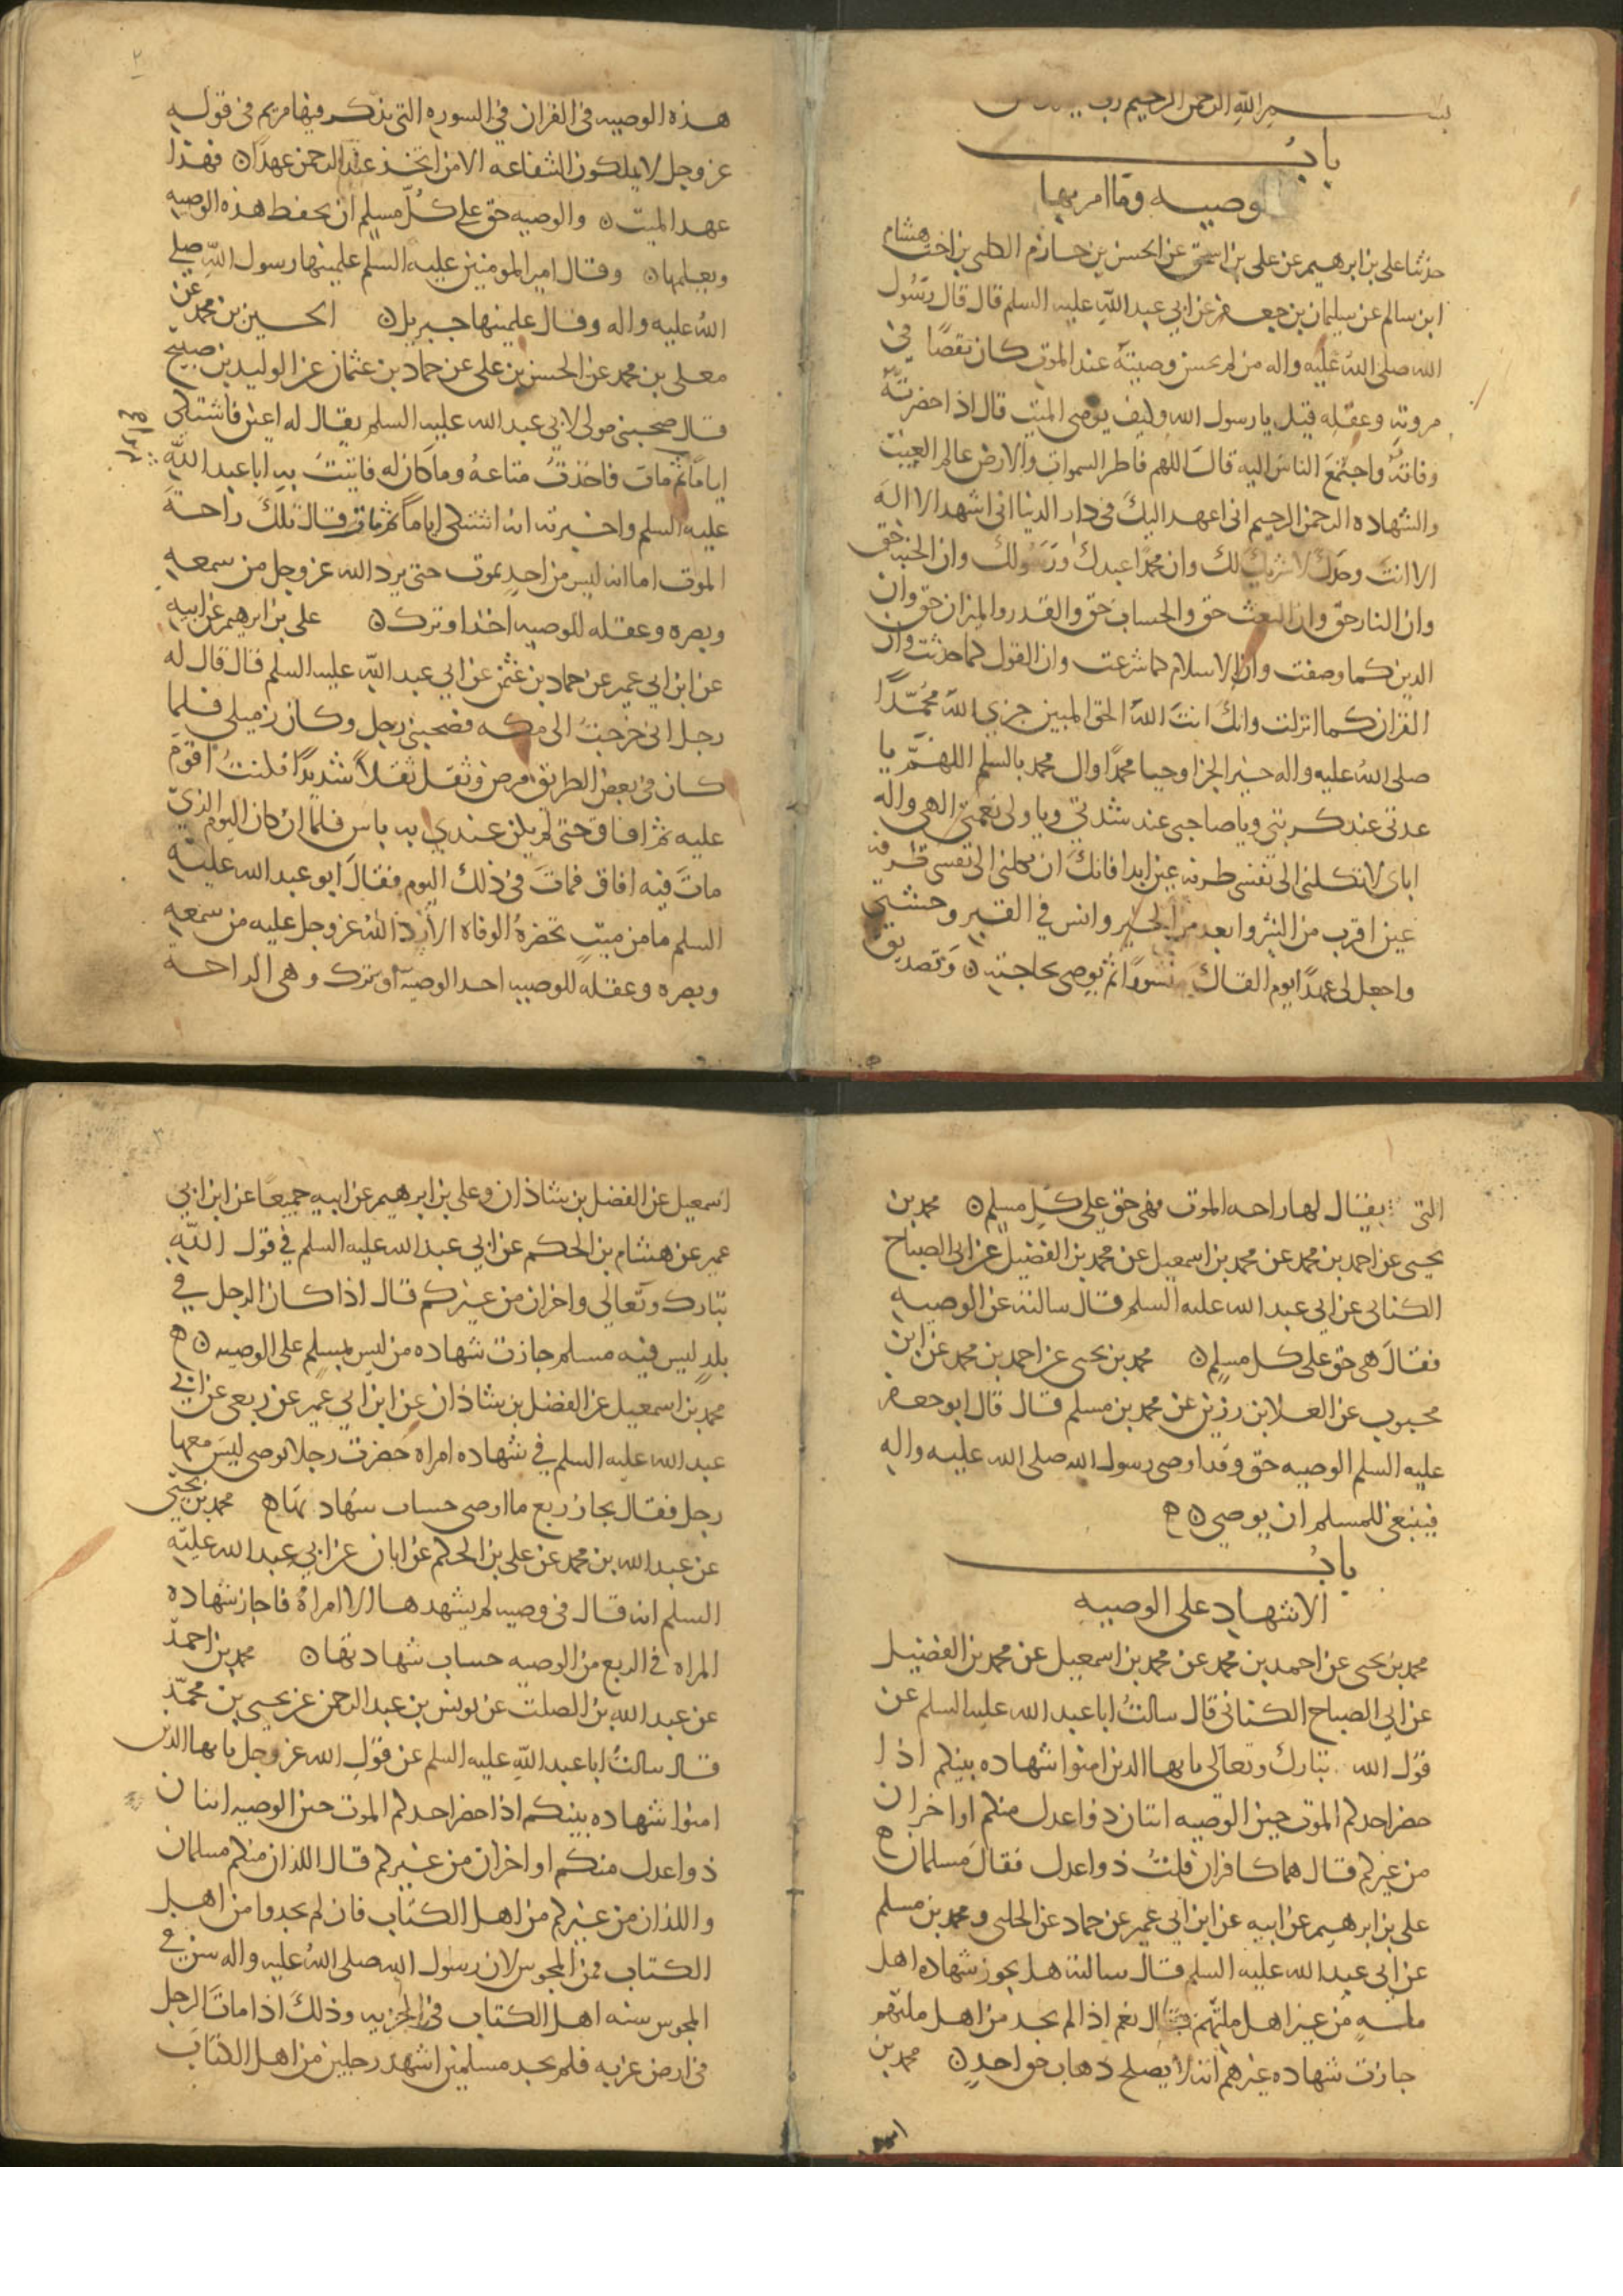 بسم الله الرحمن الرحيم رب
باب
الوصيه وما امر بها
حدثنا علي بن ابرهيم عن علي بن اسحق عن الحسن بن حازم الكلبي بن اخت هشام
ابن سالم عن سليمان بن جعفر عن ابي عبد الله عليه السلم قال قال رسول
الله صلى الله عليه واله من لم يحسن وصيته عند الموت كان نقصًا في
مروته وعقله قيل يا رسول الله وكيف يوصى الميت قال اذا حضرته
وفاته واجتمع الناس اليه قال اللهم فاطر السموات والارض عالم الغيب
والشهاده الرحمن الرحيم اني اعهد اليك في دار الدنيا اني اشهد الا اله
الا انت وحدك لا شريك لك وان محمدا عبدك ورسولك وان الجنه حق
وان النار حق وان البعث حق والحساب حق والقدر والميزان حق وان
الدين كما وصفت وان الاسلام كما شرعت وان القول كما حدثت وان
القران كما انزلت وانك انت الله الحق المبين جزي الله محمدًا
صلى الله عليه واله خير الجزا وحيا محمدًا وال محمد بالسلم اللهم يا
عدتي عند كربتي ويا صاحبي عند شدتي ويا ولي نعمتي الهي واله
اباي لا تكلني الى نفسي طرفه عين ابدا فانك ان تكلني الى نفسي طرفه
عين اقرب من الشر وابعد من الخير وانس في القبر وحشتي
واجعل لي عهدًا يوم القاك منشورًا ثم يوصي بحاجته ن وتصديق
٢
هذه الوصيه في القران في السوره التي تذكر فيها مريم في قوله
عز وجل لا يملكون الشفاعه الا من اتخذ عند الرحمن عهدًا ن فهذا
عهد الميت ن والوصيه حق على كل مسلم ان يحفظ هذه الوصيه
ويعلمها ن وقال امير المومنين عليه السلم علمنيها رسول الله صلى
الله عليه واله وقال علمنيها جبريل ن الحسين بن محمد عن
معلى بن محمد عن الحسن بن علي عن حماد بن عثمان عن الوليد بن صبيح
قال صحبني مولى لابي عبد الله عليه السلم يقال له اعين فاشتكى
اياما ثم مات فاخذت متاعه وما كان له فاتيت به ابا عبد الله
عليه السلم واخبرته انه اشتكى اياماً ثم مات قال تلك راحة
الموت اما انه ليس من احد يموت حتى يرد الله عز وجل من سمعه
وبصره وعقله للوصيه اخذ او ترك ن علي بن ابرهيم عن ابيه
عن ابن ابي عمير عن حماد بن عثمن عن ابي عبد الله عليه السلم قال قال له
رجل اني خرجت الى مكه فصحبني رجل وكان زميلي فلما
كان في بعض الطريق مرض وثقل ثقلاً شديدًا فكنت اقوم
عليه ثم افاق حتى لم يكن عندي به باس فلما ان كان اليوم الذي
مات فيه افاق فمات في ذلك اليوم فقال ابو عبد الله عليه
السلم ما من ميت تحضره الوفاه الا رد الله عز وجل عليه من سمعه
وبصره وعقله للوصيه اخذ الوصيه او ترك وهي الراحه
التي يقال لها راحه الموت فهي حق على كل مسلم ن محمد بن
يحيى عن احمد بن محمد عن محمد بن اسمعيل عن محمد بن الفضيل عن ابي الصباح
الكناني عن ابي عبد الله عليه السلم قال سالته عن الوصيه
فقال هي حق على كل مسلم ن محمد بن يحيى عن احمد بن محمد عن ابن
محبوب عن العلا بن رزين عن محمد بن مسلم قال قال ابو جعفر
عليه السلم الوصيه حق وقد اوصى رسول الله صلى الله عليه واله
فينبغي للمسلم ان يوصي ن ه
باب
الاشهاد على الوصيه
محمد بن يحيى عن احمد بن محمد عن محمد بن اسمعيل عن محمد بن الفضيل
عن ابي الصباح الكناني قال سالت ابا عبد الله عليه السلم عن
قول الله تبارك وتعالى يا يها الذين امنوا شهاده بينكم اذا
حضر احدكم الموت حين الوصيه اثنان ذوا عدل منكم او اخران
من غيركم قال هما كافران قلت ذوا عدل فقال مسلمان ه
علي بن ابرهيم عن ابيه عن ابن ابي عمير عن حماد عن الحلبي ومحمد بن مسلم
عن ابي عبد الله عليه السلم قال سالته هل يجوز شهاده اهل
مله من غير اهل ملتهم فقال نعم اذا لم يجد من اهل ملتهم
جازت شهاده غيرهم انه لا يصلح ذهاب حق احد ن محمد بن
اسمعيل
٣
اسمعيل عن الفضل بن شاذان وعلي بن ابرهيم عن ابيه جميعًا عن ابن ابي
عمير عن هشام بن الحكم عن ابي عبد الله عليه السلم في قول الله
تبارك وتعالى واخران من غيركم قال اذا كان الرجل في
بلد ليس فيه مسلم جازت شهاده من ليس بمسلم على الوصيه ن ه
محمد بن اسمعيل عن الفضل بن شاذان عن ابن ابي عمير عن ربعي عن ابي
عبد الله عليه السلم في شهاده امراه حضرت رجلا يوصي ليس معها
رجل فقال يجاز ربع ما اوصى حساب شهادتها ه محمد بن يحيى
عن عبد الله بن محمد عن علي بن الحكم عن ابان عن ابي عبد الله عليه
السلم انه قال في وصيه لم يشهدها الا امراة فاجاز شهاده
المراه في الربع من الوصيه حساب شهادتها ن محمد بن احمد
عن عبد الله بن الصلت عن يونس بن عبد الرحمن عن يحيى بن محمد
قال سالت ابا عبد الله عليه السلم عن قول الله عز وجل يا يها الذين
امنوا شهاده بينكم اذا حضر احدكم الموت حين الوصيه اثنان
ذوا عدل منكم او اخران من غيركم قال اللذان منكم مسلمان
واللذان من غيركم من اهل الكتاب فان لم يجدوا من اهل
الكتاب فمن المجوس لان رسول الله صلى الله عليه واله سن في
المجوس سنه اهل الكتاب في الجزيه وذلك اذا مات الرجل
في ارض غربه فلم يجد مسلمين اشهد رجلين من اهل الكتاب